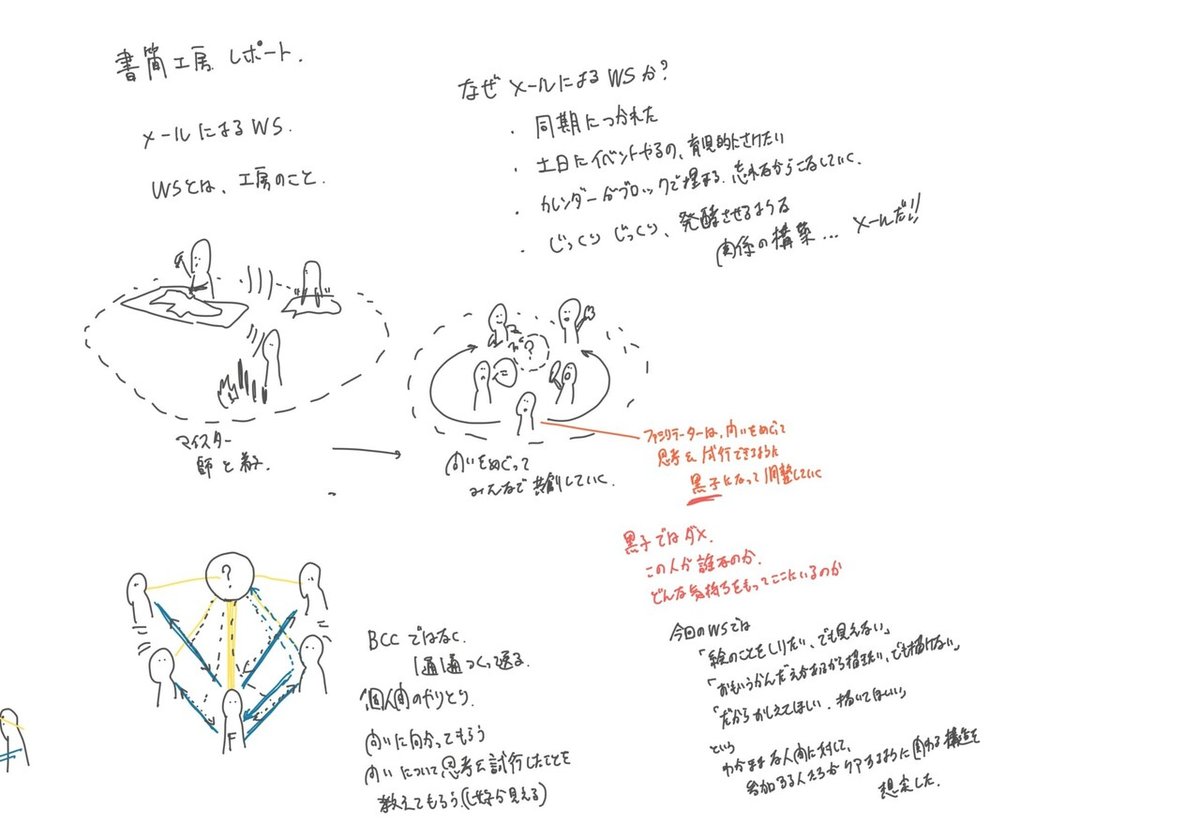 書簡工房 レポート.
メールによるWS.
WSとは、工房のこと.
なぜ メールによる WSか?
・同期につかれた
・土日にイベントやるの、育児的にさけたい
・カレンダーがブロックで埋まる. 忘れるからこなしていく.
・じっくり じっくり、発酵させるような
関係の構築... メールだ!!
マイスター
師と弟子.
問いをめぐって
みんなで共創していく.
ファシリテーターは、問いをめぐって
思考と試行できるように
黒子になって調整していく
黒子ではダメ.
この人が誰なのか.
どんな気持ちをもってここにいるのか
?
?
F
BCCではなく.
1通1通つくって送る.
個人間のやりとり.
問いに向かってもらう
問いについて思考と試行したことを
教えてもらう(しぐさが見える)
今回のWSでは
「絵のことをしりたい、でも見えない」
「おもいうかんだ えがあるから描きたい、でも描けない」
「だからおしえてほしい. 描いてほしい」
という
わがままな人間に対して、
参加する人たちがケアするように関わる構造を
想定した.